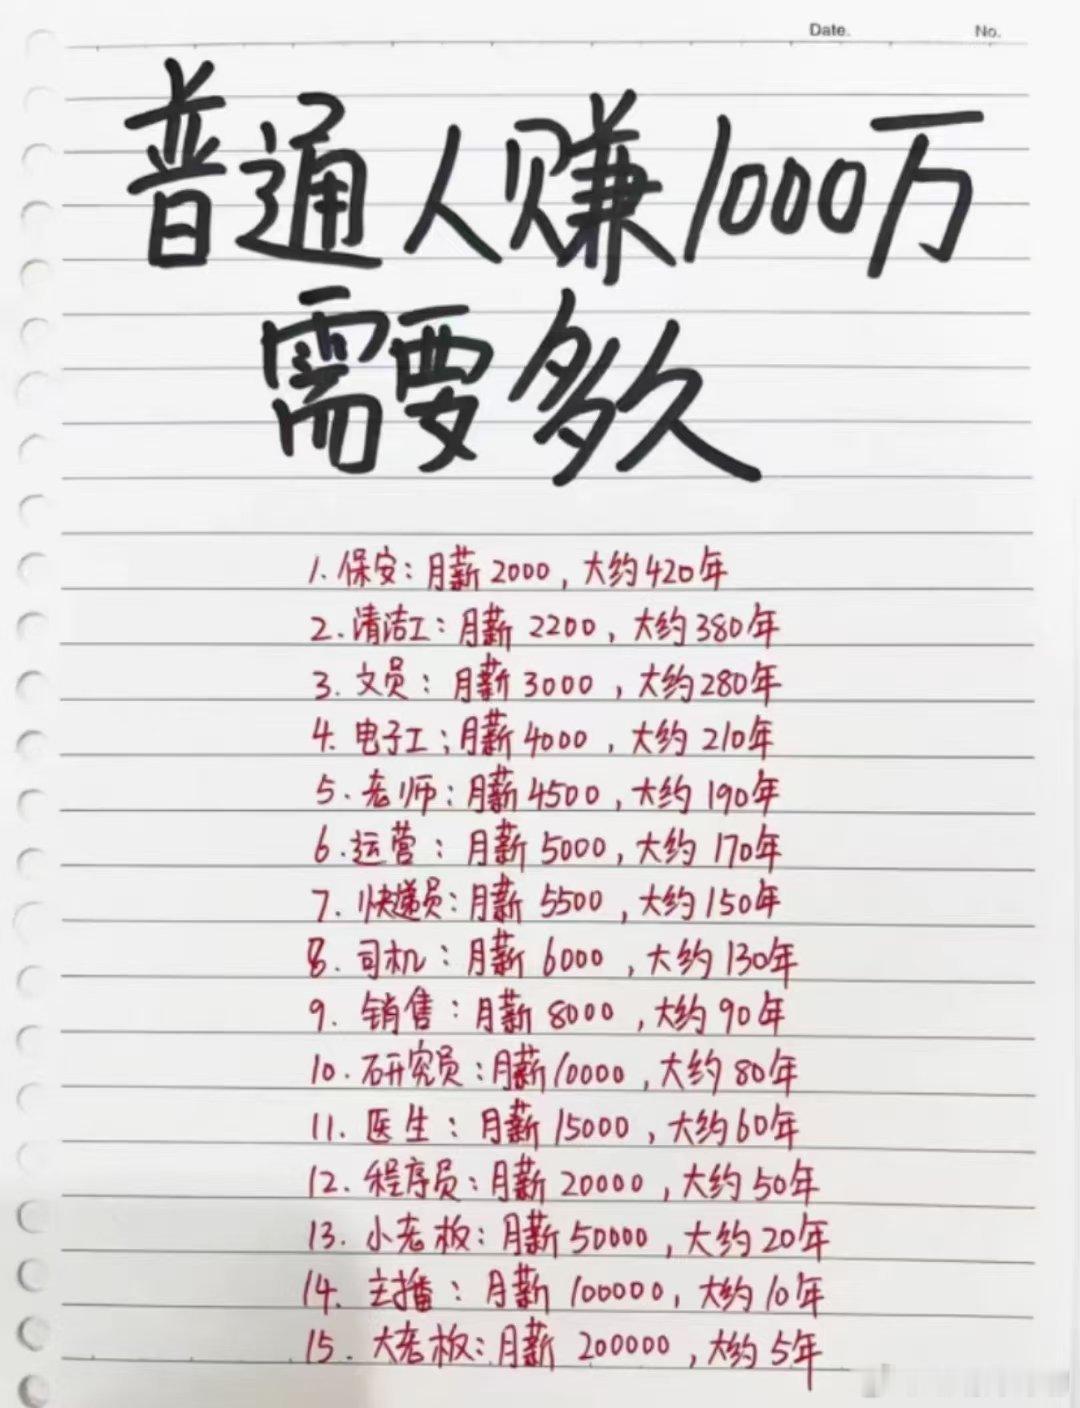 Date.
No.
普通人赚1000万
需要多久
1.保安:月薪2000,大约420年
2.清洁工:月薪2200,大约380年
3.文员:月薪3000,大约280年
4.电子工:月薪4000,大约210年
5.老师:月薪4500,大约190年
6.运营:月薪5000,大约170年
7.快递员:月薪5500,大约150年
8.司机:月薪6000,大约130年
9.销售:月薪8000,大约90年
10.研究员:月薪10000,大约80年
11.医生:月薪15000,大约60年
12.程序员:月薪20000,大约50年
13.小老板:月薪50000,大约20年
14.主播:月薪100000,大约10年
15.大老板:月薪200000,大约5年